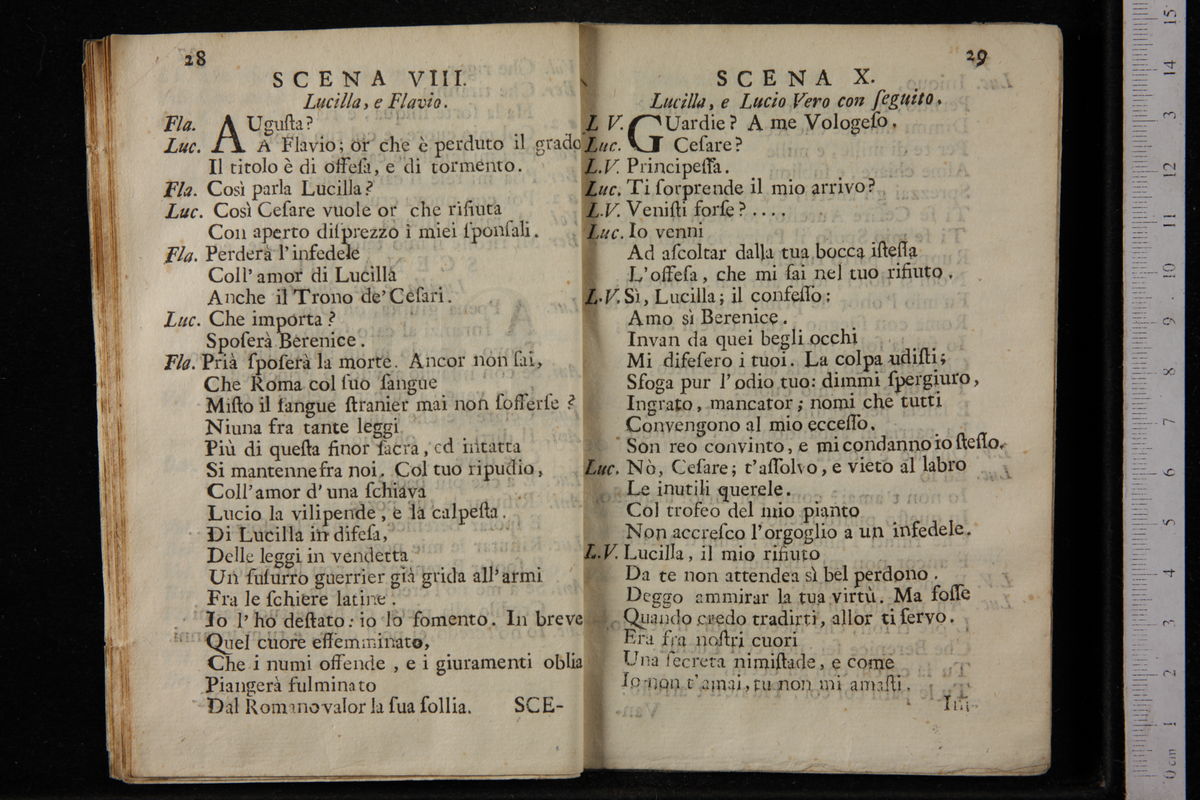 28
SCENA VIII.
Lucilla, e Flavio.
Fla. AUguſta?
Luc. A Flavio; or che è perduto il grado
Il titolo è di offeſa, e di tormento.
Fla. Così parla Lucilla?
Luc. Così Ceſare vuole or che rifiuta
Con aperto diſprezzo i miei ſponſali.
Fla. Perderà l'infedele
Coll' amor di Lucilla
Anche il Trono de' Ceſari.
Luc. Che importa?
Spoſerà Berenice.
Fla. Prià ſpoſerà la morte. Ancor non ſai,
Che Roma col ſuo ſangue
Miſto il ſangue ſtranier mai non ſofferſe?
Niuna fra tante leggi
Più di queſta finor ſacra, ed intatta
Si mantenne fra noi. Col tuo ripudio,
Coll' amor d' una ſchiava
Lucio la vilipende, e la calpeſta.
Di Lucilla in difeſa,
Delle leggi in vendetta
Un ſuſurro guerrier già grida all' armi
Fra le ſchiere latine.
Io l' ho deſtato: io lo fomento. In breve
Quel cuore effemminato,
Che i numi offende, e i giuramenti oblia
Piangerà fulminato
Dal Romano valor la ſua follia.
SCE-
29
SCENA X.
Lucilla, e Lucio Vero con ſeguito.
L V. GUardie? A me Vologeſo.
Luc. Ceſare?
L.V. Principeſſa.
Luc. Ti ſorprende il mio arrivo?
L.V. Veniſti forſe? ....
Luc. Io venni
Ad aſcoltar dalla tua bocca iſteſſa
L'offeſa, che mi fai nel tuo rifiuto.
L.V. Sì, Lucilla; il confeſſo:
Amo sì Berenice.
Invan da quei begli occhi
Mi difeſero i tuoi. La colpa udiſti;
Sfoga pur l' odio tuo: dimmi ſpergiuro,
Ingrato, mancator; nomi che tutti
Convengono al mio ecceſſo.
Son reo convinto, e mi condanno io ſteſſo.
Luc. Nò, Ceſare; t'aſſolvo, e vieto al labro
Le inutili querele.
Col trofeo del mio pianto
Non accreſco l'orgoglio a un infedele.
L.V. Lucilla, il mio rifiuto
Da te non attendea sì bel perdono.
Deggo ammirar la tua virtù. Ma foſſe
Quando credo tradirti, allor ti ſervo.
Era fra noſtri cuori
Una ſecreta nimiſtade, e come
Io non t'amai, tu non mi amaſti.